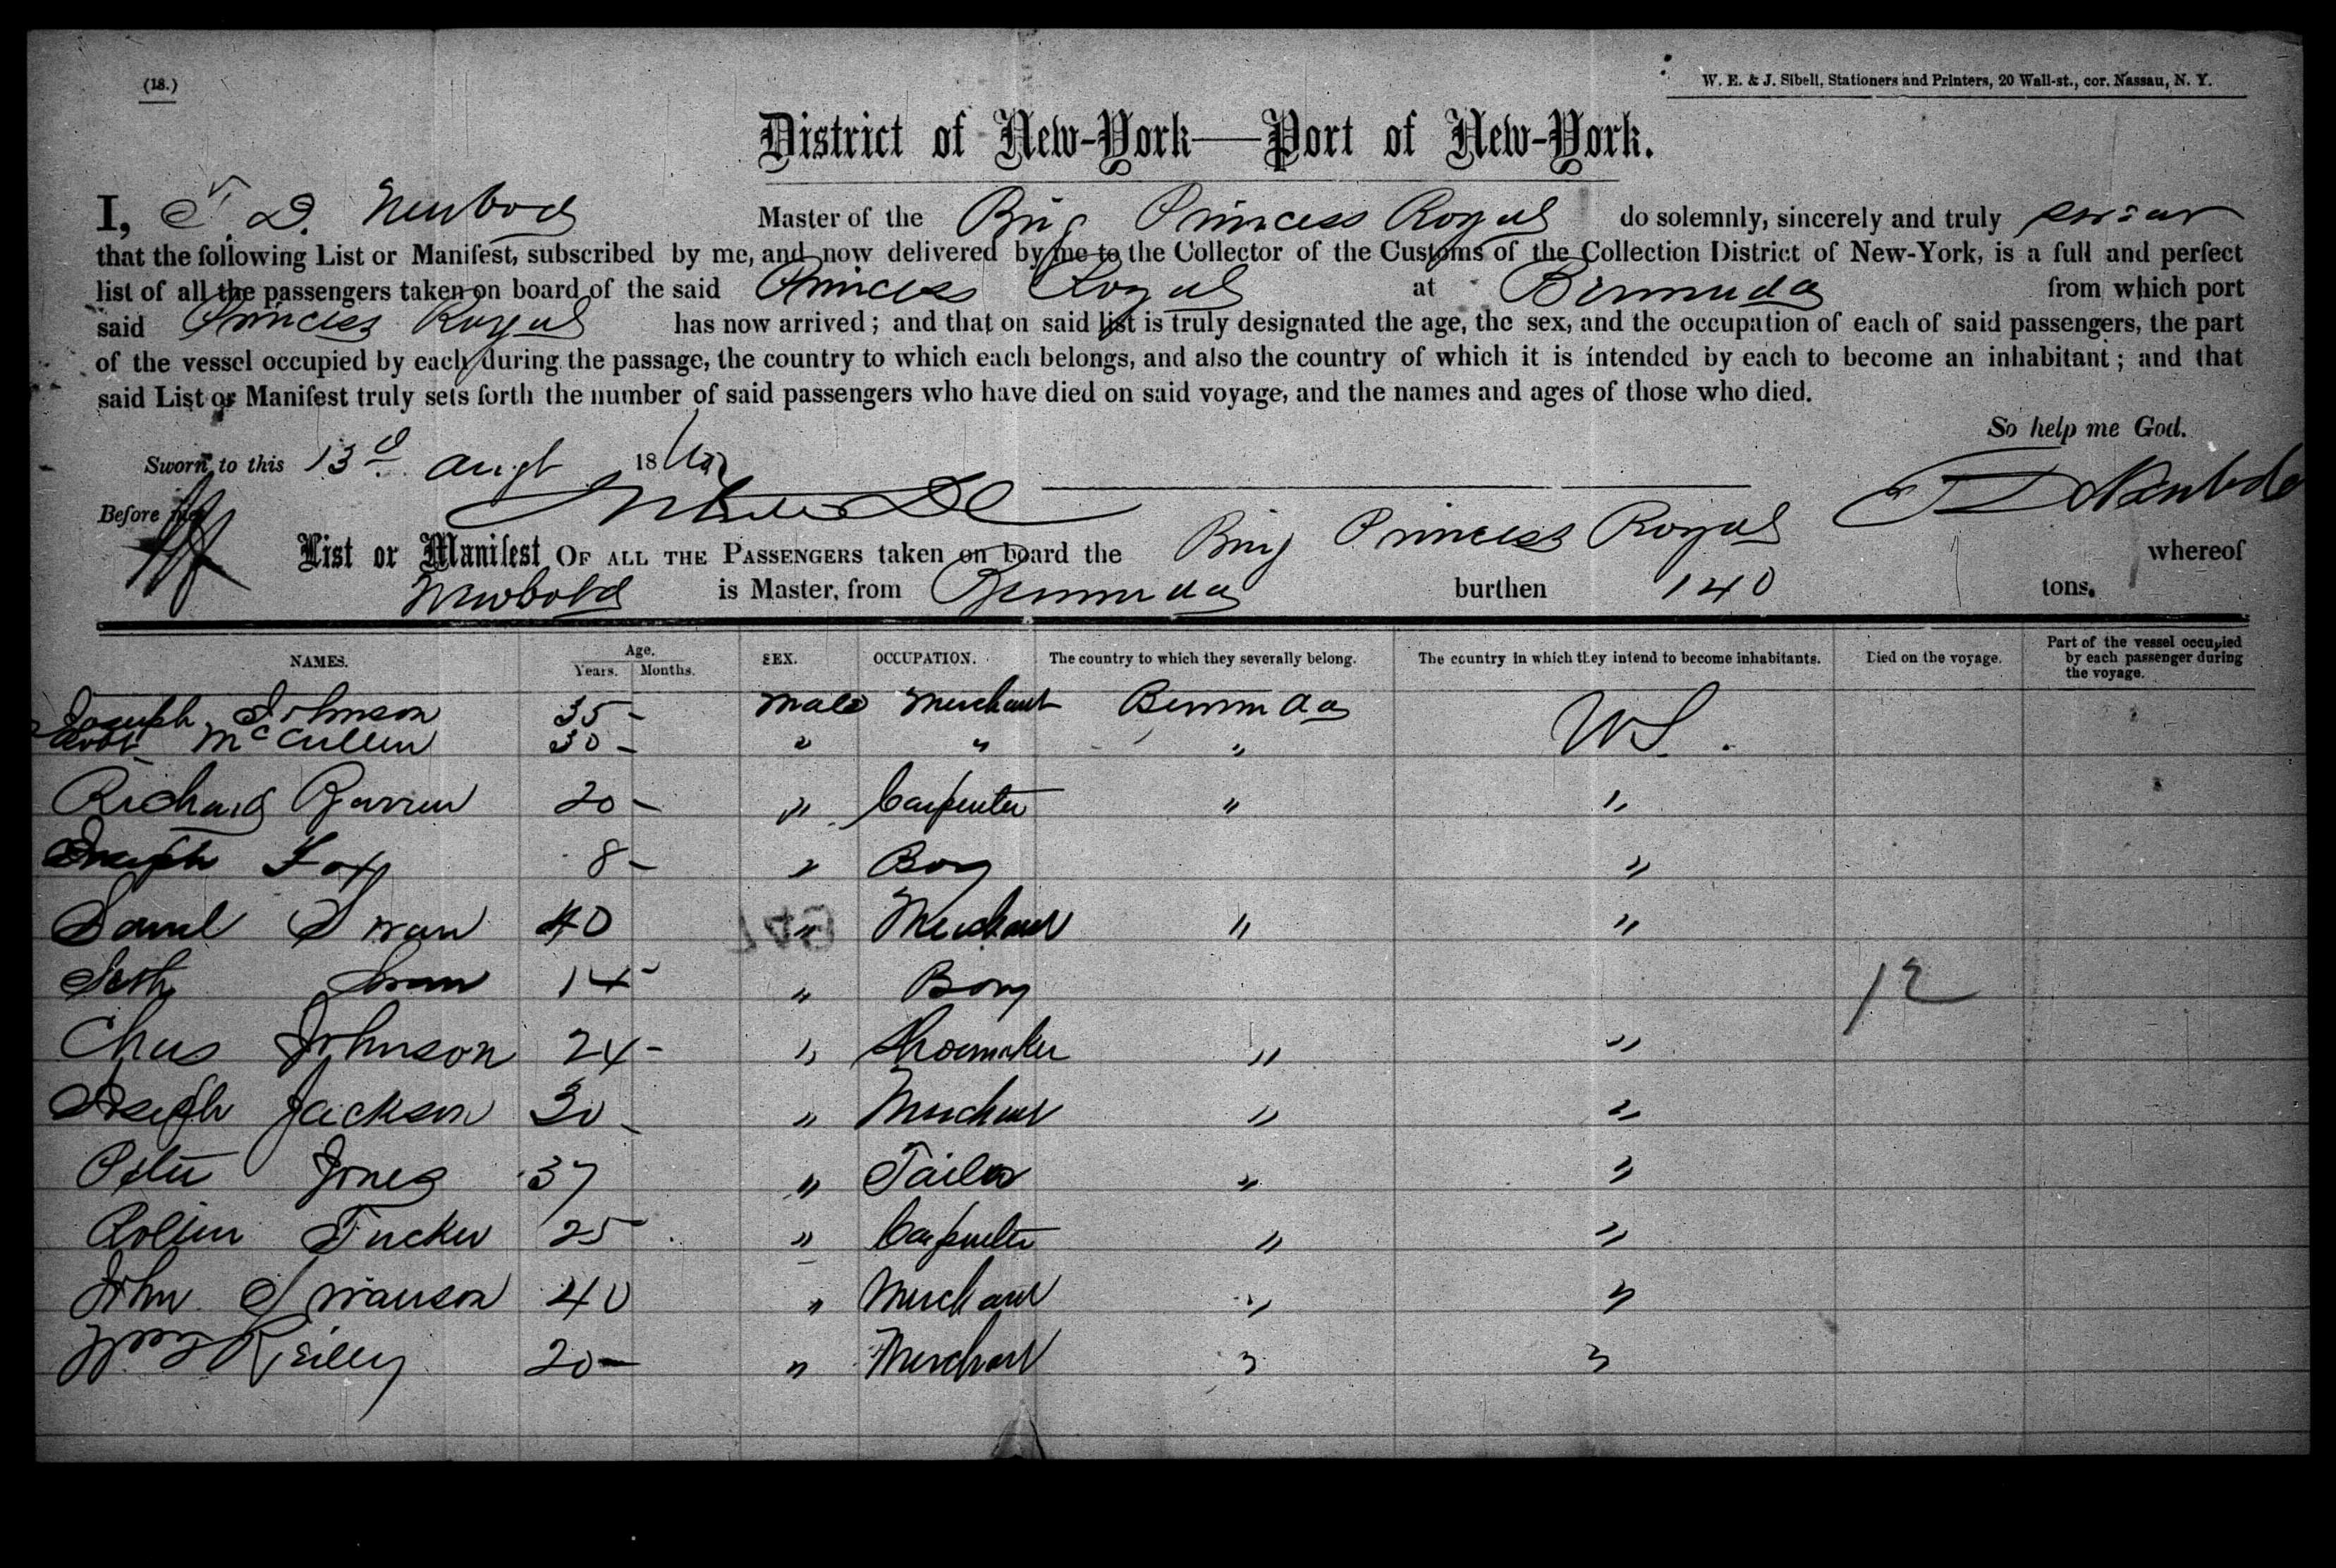 (18.)
W. E. & J. Sibell, Stationers and Printers, 20 Wall-st., cor. Nassau, N. Y.
District of New-York—Port of New-York.
I, T. D. Newbold Master of the Brig Princess Royal do solemnly, sincerely and truly swear
that the following List or Manifest, subscribed by me, and now delivered by me to the Collector of the Customs of the Collection District of New-York, is a full and perfect
list of all the passengers taken on board of the said Princess Royal at Bermuda from which port
said Princess Royal has now arrived; and that on said list is truly designated the age, the sex, and the occupation of each of said passengers, the part
of the vessel occupied by each during the passage, the country to which each belongs, and also the country of which it is intended by each to become an inhabitant; and that
said List or Manifest truly sets forth the number of said passengers who have died on said voyage, and the names and ages of those who died.
So help me God.
Sworn to this 13d Augt 18
Before me T D Newbold
List or Manifest OF ALL THE PASSENGERS taken on board the Brig Princess Royal whereof
Newbold is Master, from Bermuda burthen 140 tons.
NAMES. Age. Years. Months. SEX. OCCUPATION. The country to which they severally belong. The country in which they intend to become inhabitants. Died on the voyage. Part of the vessel occupied by each passenger during the voyage.
Joseph Johnson 35 - Male Merchant Bermuda
McCullen 30 - " " " US.
Richard 20 - " Carpenter " "
Joseph Fox 8 - " Boy "
Saml Swan 40 " Merchant " "
Seth Swan 14 - " Boy 12
Chas Johnson 24 - " Shoemaker " "
Joseph Jackson 30 - " Merchant " "
Peter Jones 37 " Tailor " "
Tucker 25 " Carpenter " "
John Swanson 40 " Merchant " "
Wm Reilly 20 - " Merchant " "